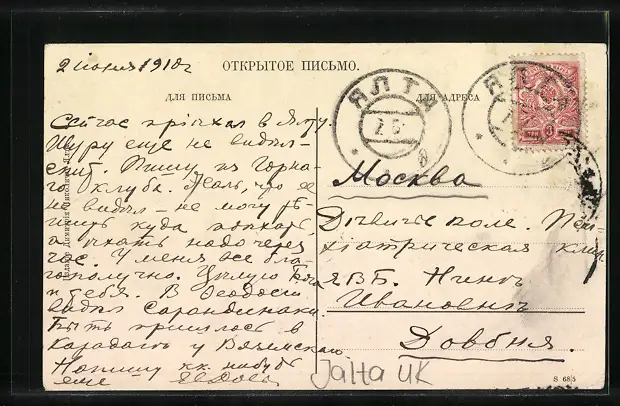 2 июня 1910 г
ОТКРЫТОЕ ПИСЬМО.
ДЛЯ ПИСЬМА
ДЛЯ АДРЕСА
ЯЛТА
Сейчас пріѣхал в Ялту
Шуру еще не видѣл
Пишу из Горна-
го клуба. Жаль, что ее
не видѣл - не могу рѣ-
шить куда поѣхать,
а ѣхать надо через
час. У меня все бла-
гополучно. Цѣлую
тебя. В Ѳеодосіи
видѣл Сарандинаки.
Быть пришлось в
Карадагѣ у Вяземскаго.
Напишу
еще
Москва
Дѣвичье поле. Пси-
хіатрическая клин
Я В Б. Нинѣ
Ивановнѣ
Довбня.
Jalta UK
S 685